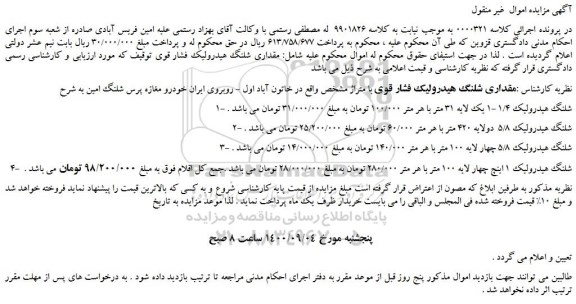 آگهی مزایده اموال غیر منقول
در پرونده اجرائی کلاسه ۰۰۰۰۳۲۱ به موجب نیابت به کلاسه ۹۹۰۱۸۲۶ له مصطفی رستمی با وکالت آقای بهزاد رستمی علیه امین فریس آبادی صادره از شعبه سوم اجرای
احکام مدنی دادگستری قزوین که طی آن محکوم علیه ، محکوم به پرداخت ۶۱۳/۷۵۸/۶۷۷ ریال در حق محکوم له و پرداخت مبلغ ۳۰/۰۰۰/۰۰۰ ریال بابت نیم عشر دولتی
اعلام گردیده است . لذا در جهت استیفای حقوق محکوم له اموال محکوم علیه شامل: مقداری شلنگ هیدرولیک فشار قوی توقیف که مورد ارزیابی و کارشناسی رسمی
دادگستری قرار گرفته که نظریه کارشناسی و قیمت اعلامی به شرح ذیل می باشد
نظریه کارشناس :مقداری شلنگ هیدرولیک فشار قوی با متراژ مشخص واقع در خاتون آباد اول – روبروی ایران خودرو مغازه پرس شلنگ امین به شرح
شلنگ هیدرولیک ۱/۴ -۱ یک لایه ۳۱ متر با هر متر ۱۰۰/۰۰۰ تومان به مبلغ ۳۱/۰۰۰/۰۰۰ تومان می باشد . -۱
شلنگ هیدرولیک ۵/۸ دولایه ۴۲۰ متر با هر متر ۶۰/۰۰۰ تومان به مبلغ ۲۵/۲۰۰/۰۰۰ تومان می باشد . -۲
شلنگ هیدرولیک ۵/۸ چهار لایه ۱۰۰ متر با هر متر ۱۴۰/۰۰۰ تومان به مبلغ ۱۴/۰۰۰/۰۰۰ تومان می باشد . -۳
شلنگ هیدرولیک ۱ اینچ چهار لایه ۱۰۰ متر با هر متر ۲۸۰/۰۰۰ تومان به مبلغ ۲۸/۰۰۰/۰۰۰ تومان می باشد .جمع کل اقلام فوق به مبلغ ۹۸/۲۰۰/۰۰۰ تومان می باشد . -۴
نظریه مذکور به طرفین ابلاغ که مصون از اعتراض قرار گرفته است مبلغ مزایده از قیمت پایه کارشناسی شروع و به کسی که بالاترین قیمت را پیشنهاد نماید فروخته خواهد شد
و مبلغ ۱۰% قیمت فروخته شده فی المجلس و الباقی را می بایست خریدار ظرف یک ماه پرداخت نماید . لذا موعد مزایده به تاریخ
پنجشبه مورخ ۱۴۰۰/۰۹/۰۴ ساعت ۸ صبح
تعیین و اعلام می گردد .
طالبین می توانند جهت بازدید اموال مذکور پنج روز قبل از موعد مقرر به دفتر اجرای احکام مدنی مراجعه تا ترتیب بازدید داده شود . به درخواست های پس از مهلت مقرر
ترتیب اثر داده نخواهد شد .
پایگاه اطلاع رسانی مناقصه و مزایده